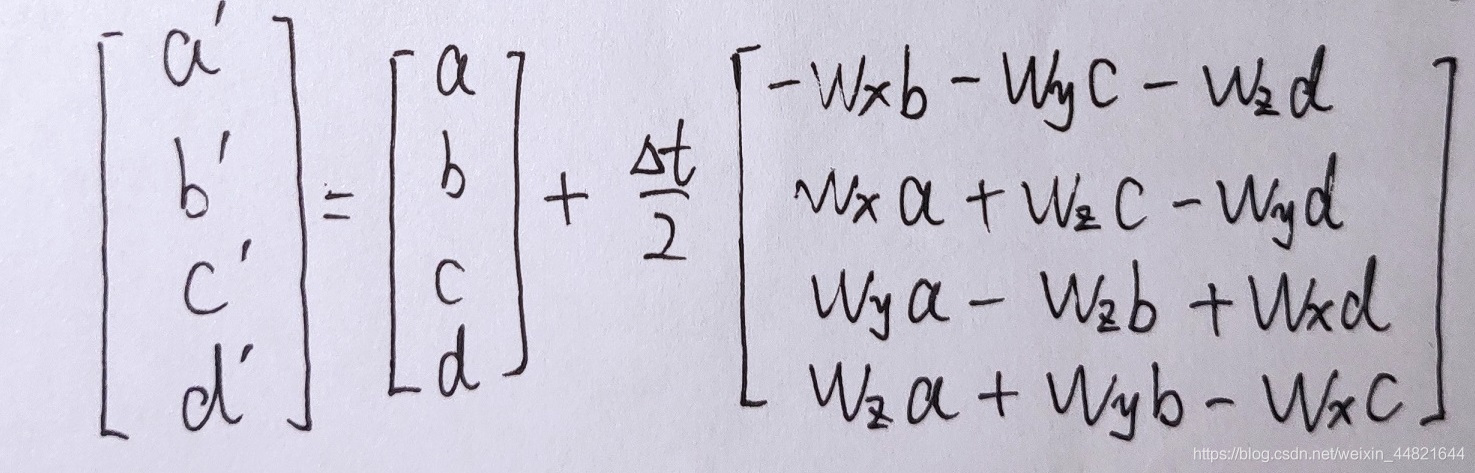 [a' b' c' d'] = [a b c d] + Δt/2 [
-Wxb - Wyc - Wzd
Wxa + Wzc - Wyd
Wya - Wzb + Wxd
Wza + Wyb - Wxc
]
https://blog.csdn.net/weixin_44821644